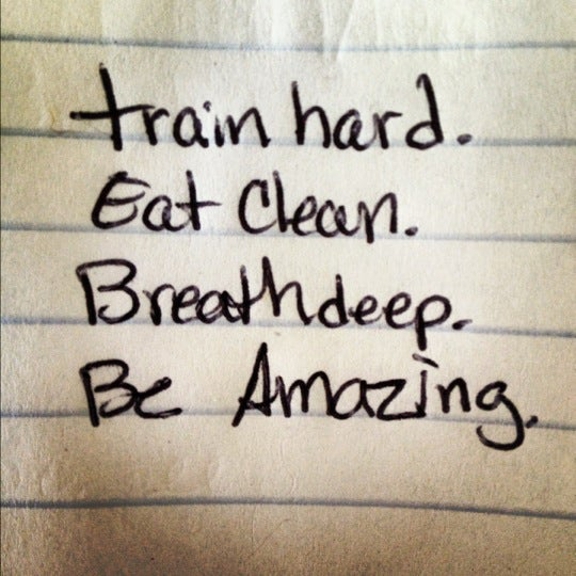 train hard.
Eat Clean.
Breath deep.
Be Amazing.